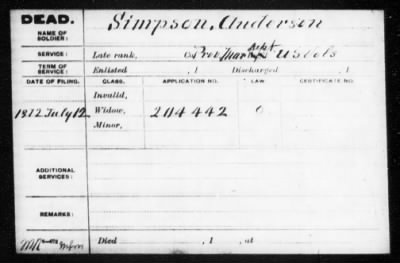 DEAD. Simpson, Anderson
NAME OF SOLDIER:
SERVICE: Late rank, Prov Mar Dept US Vols
TERM OF SERVICE: Enlisted , 1 Discharged , 1
DATE OF FILING. CLASS. APPLICATION NO. LAW CERTIFICATE NO.
Invalid,
1872 July 12 Widow, 204442
Minor,
ADDITIONAL SERVICES:
REMARKS:
Died , 1 , at